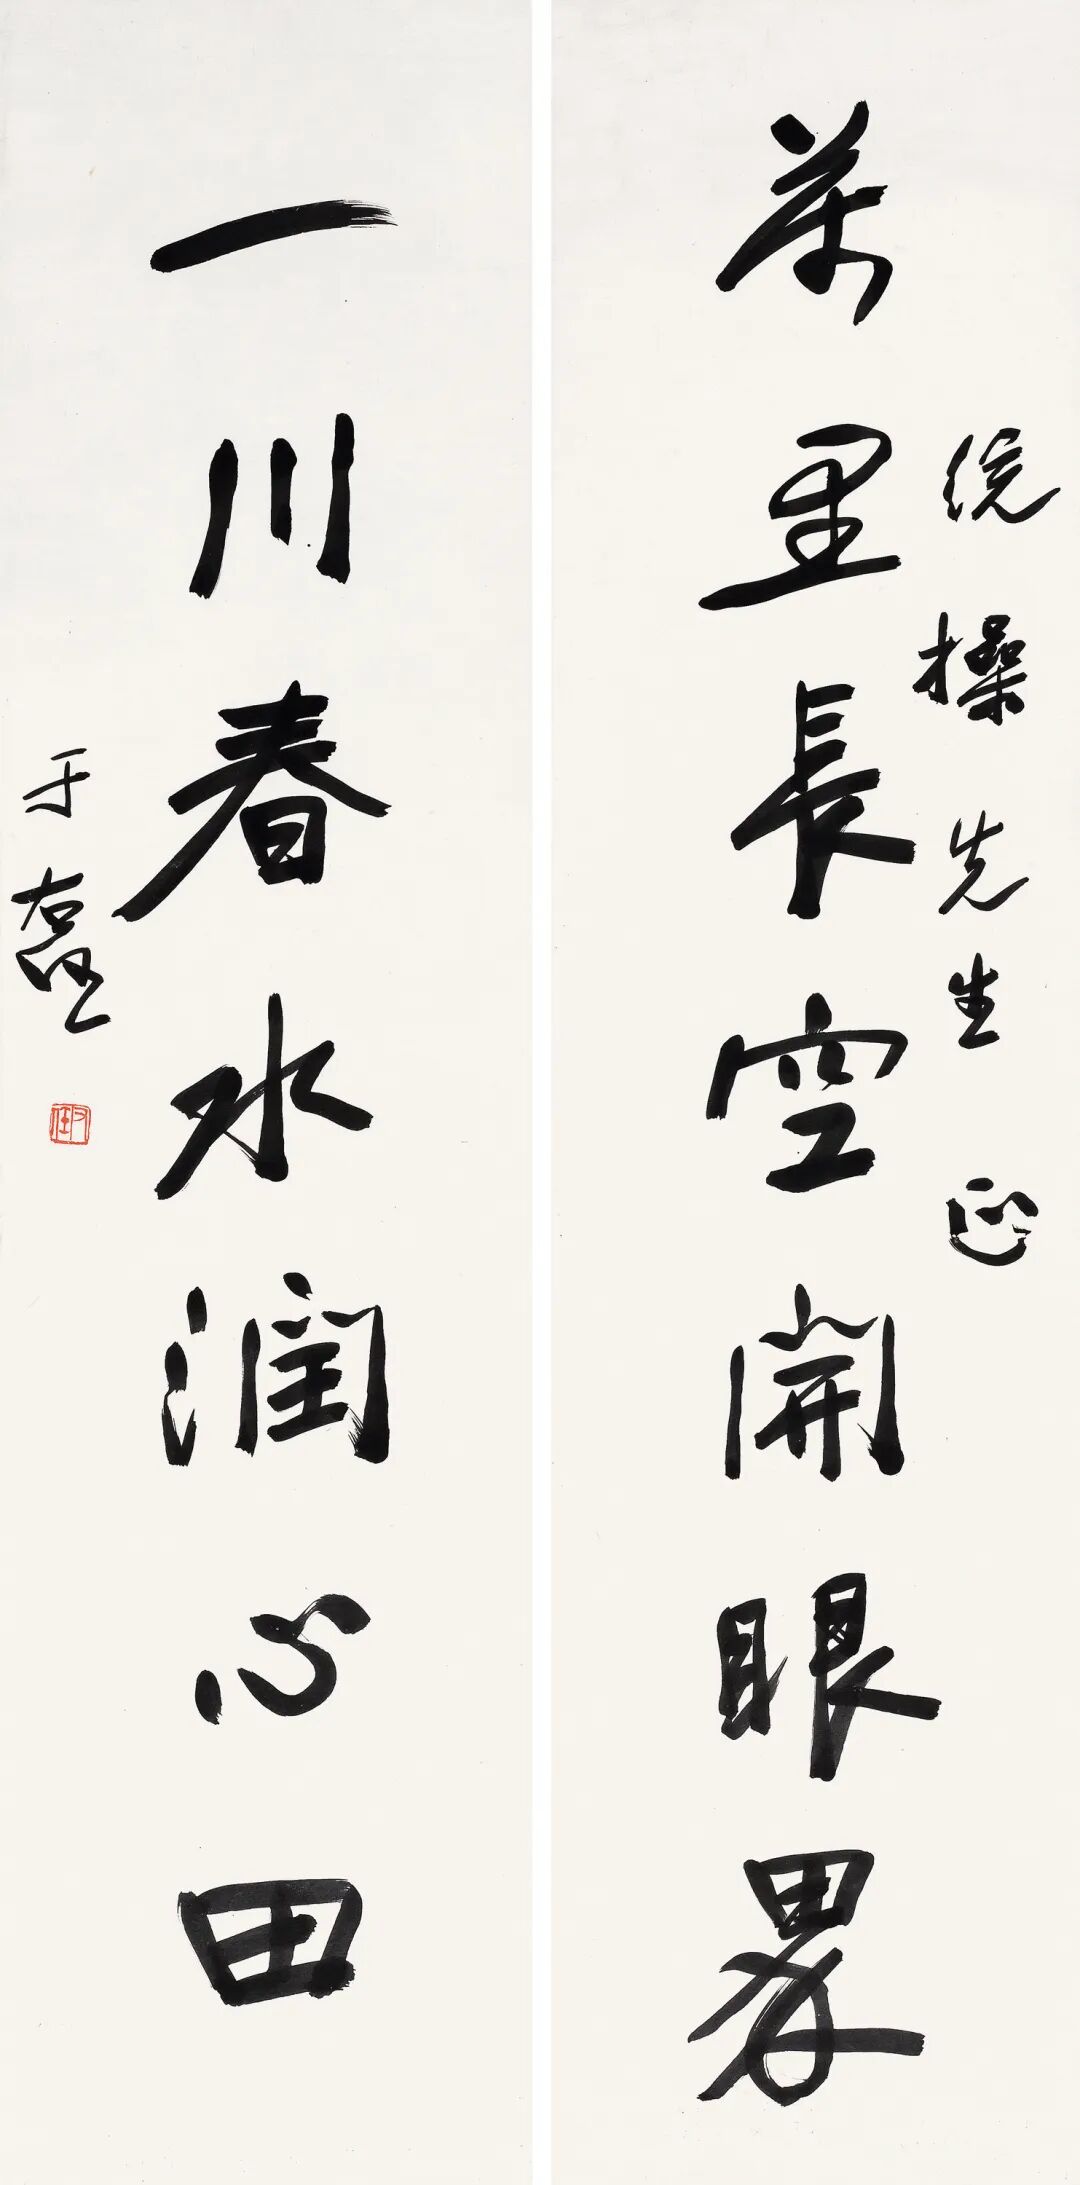 統操先生正
萬里長空開眼界
一川春水潤心田
于右任
右任